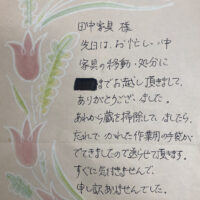 田中家具 様
先日は、お忙しい中
家具の移動・処分に
までお越し頂きまして、
ありがとうございました。
あれから蔵を掃除していましたら
たれて、かれた作業用の手袋が
でてきましたので送らせて頂きます。
すぐに気付きませんで、
申し訳ありませんでした。